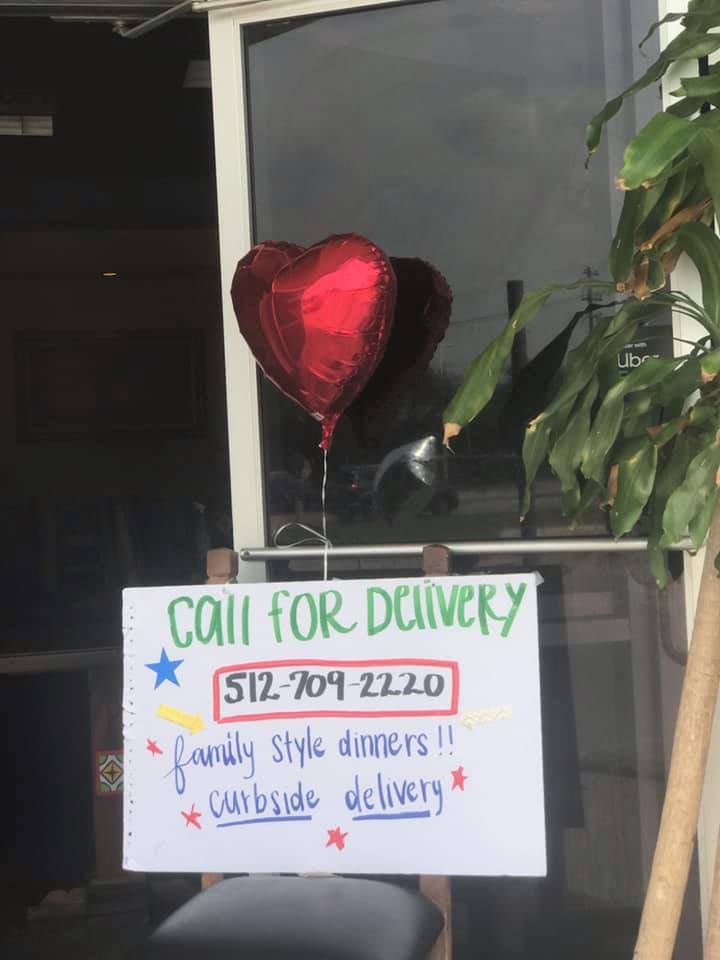 Uber
Call for Delivery
512-709-2220
family style dinners!!
curbside delivery